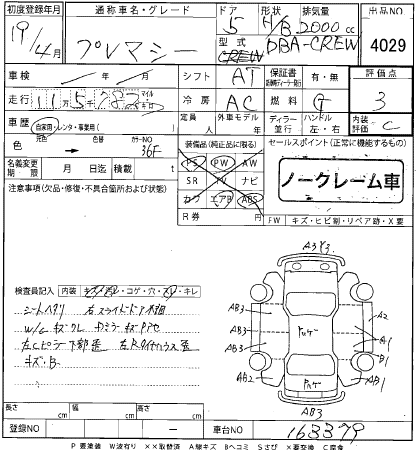 初度登録年月 通称車名・グレード ドア 形状 排気量 出品NO
19/4月 プレマシー 5 H/B 2000cc
型式 CREW DBA-CREW 4029
車検 / / シフト AT 保証書 有・無 評価点
走行 11万5千782 マイル キロ 冷房 AC 燃料 G 3
車歴 自家用・レンタ・事業用( ) 定員 人 外車モデル 年 ディーラー 並行 ハンドル 左・右 内装評価 C
色 → 色替 カラーNO 36F 装備品(純正品に限る) セールスポイント(正常に機能するもの)
名義変更期限 月 日迄 積載 t PS PW AW
注意事項(欠品・修復・不具合箇所および状態) SR TV ナビ ノークレーム車
カワ エアB ABS
R券 円 FW キズ・ヒビ割・リペア跡・X要
A3 P3
検査員記入 内装 キズ・汚レ・コゲ・穴・スレ・キレ
シートヘタリ 右スライドドア不調
W/Gキズクレ Dミラーキズ
左Cピラー下部歪 右Rタイヤハウス歪
キズ・B
AB3 A2
AB3 A1
AB3 B1
AB2 AB1
AB3
長さ cm 幅 cm 高さ cm
登録NO ー 車台NO 163379
P要塗装 W波有り XX取替済 A線キズ Bヘコミ Sさび X要交換 C腐食